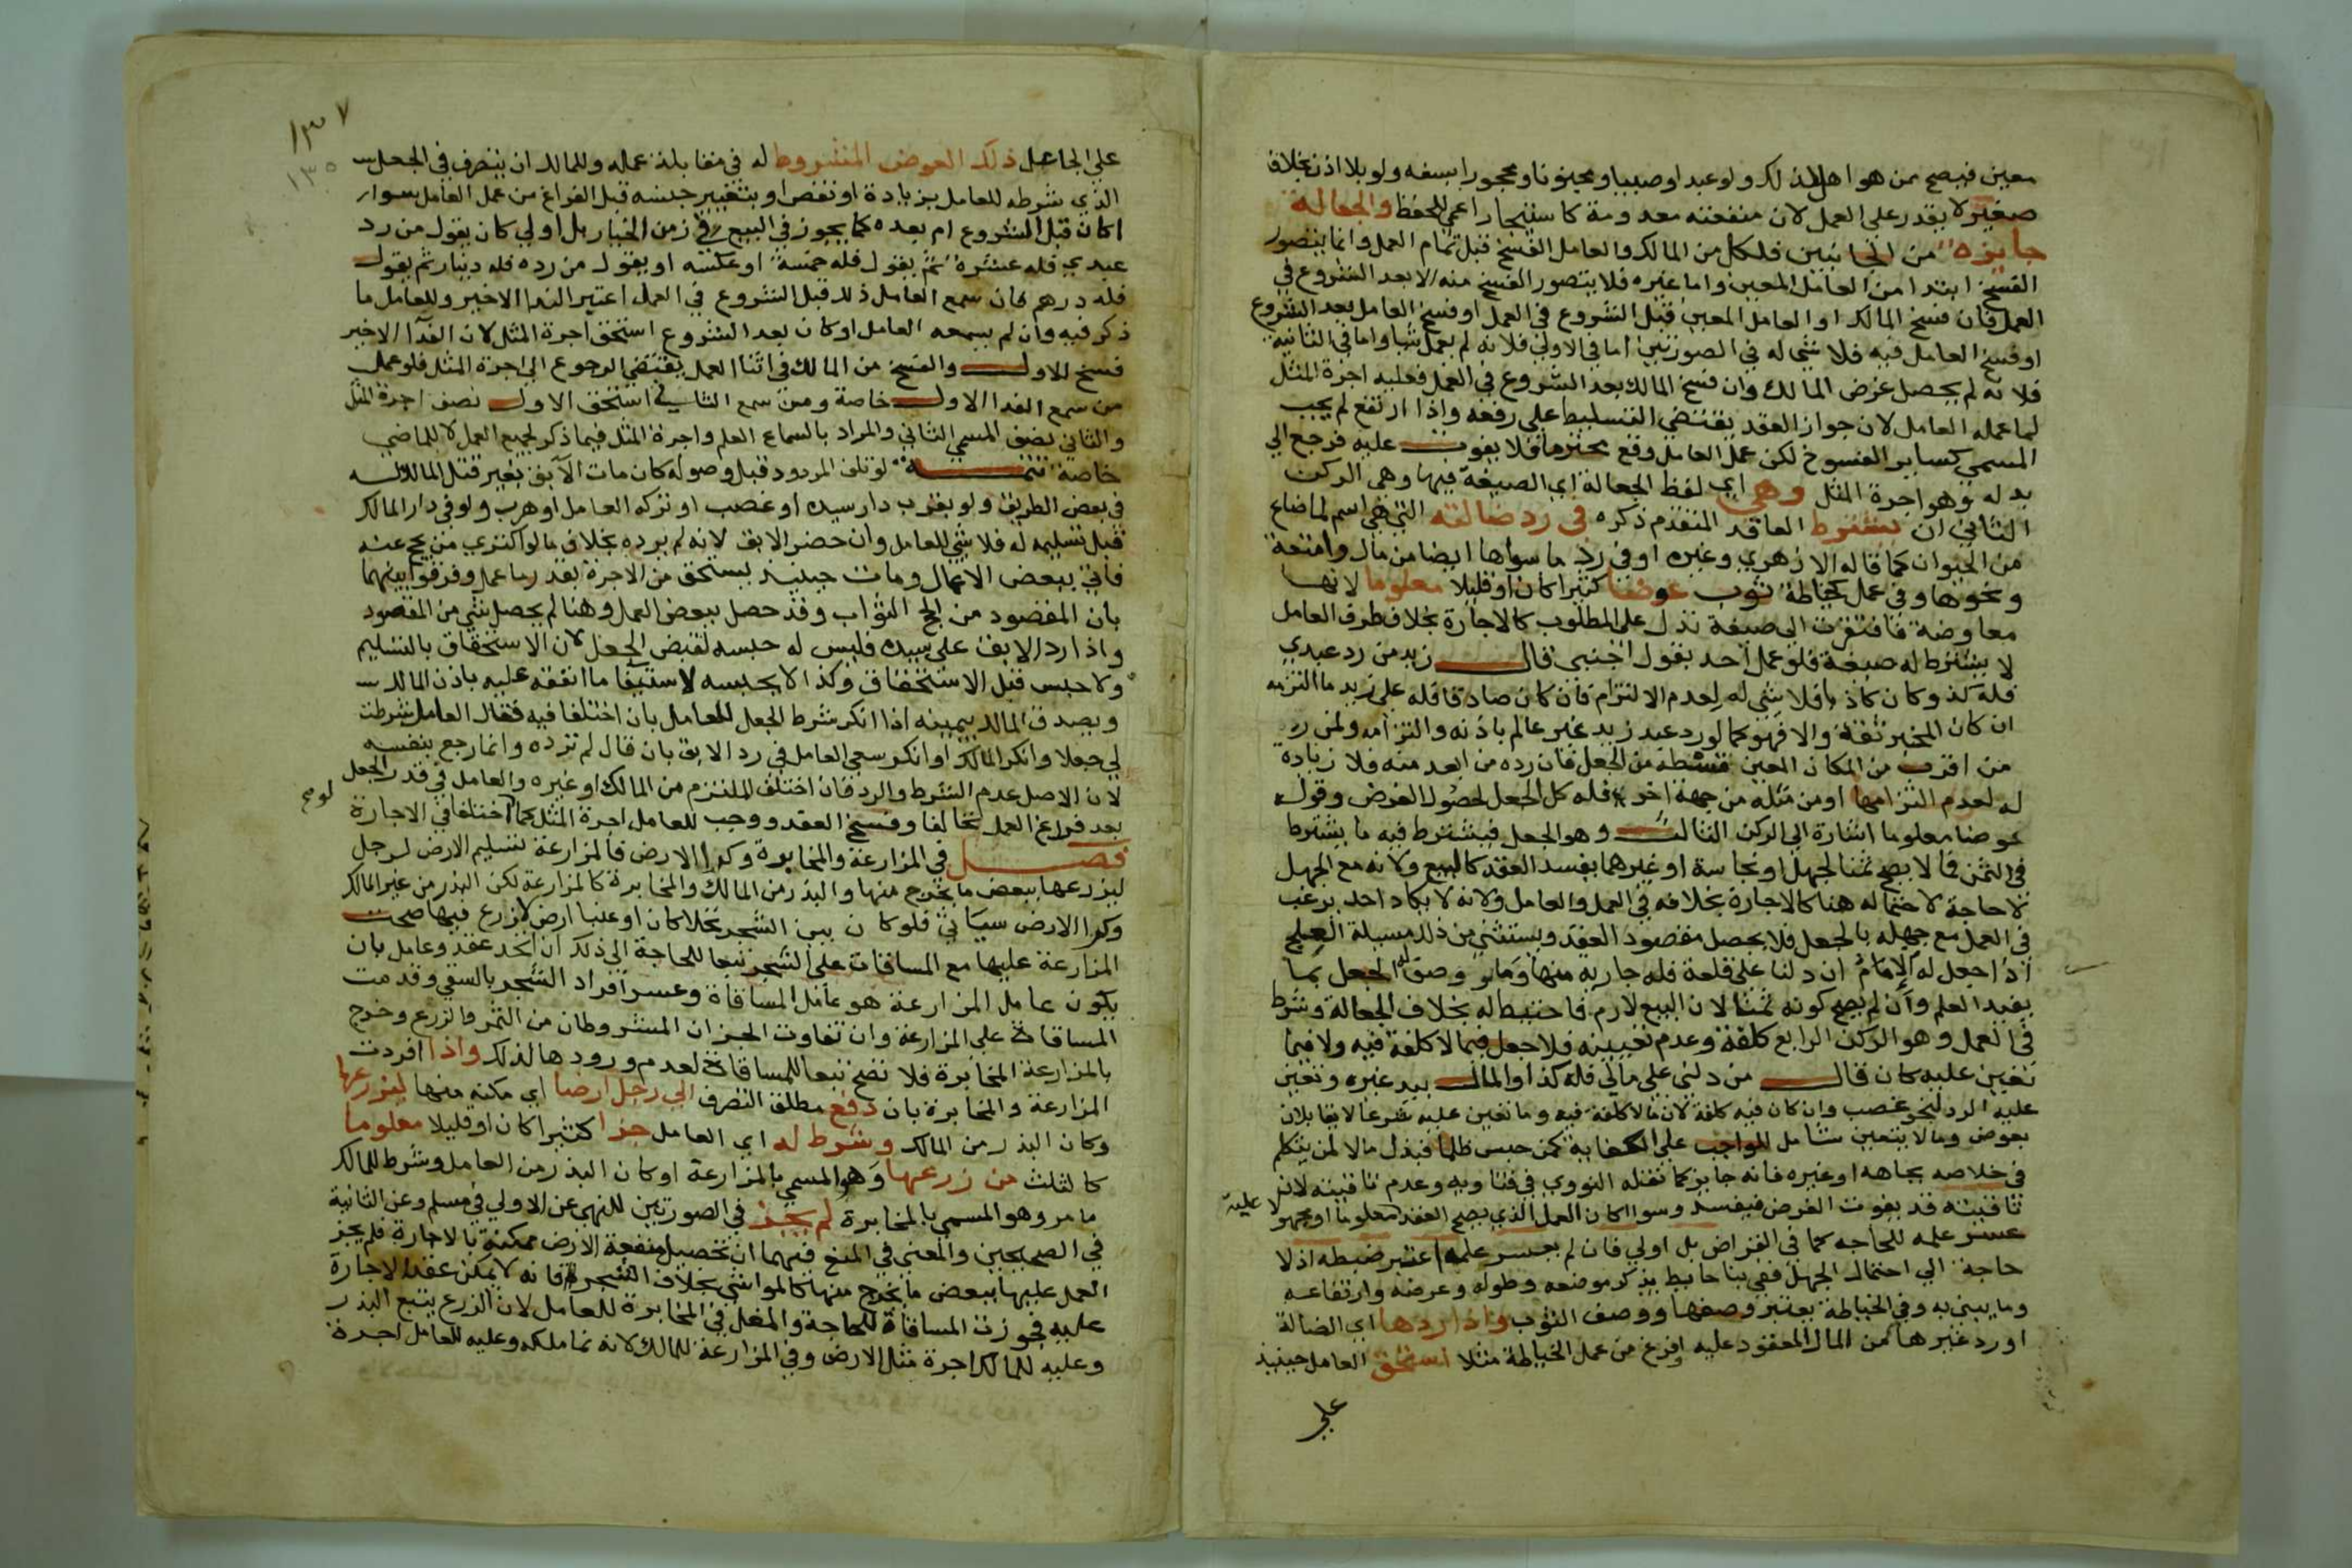 معين فيصح ممن هو اهل لذلك ولو عبدا وصبيا ومجنونا ومحجورا بسفه ولو بلا اذن بخلاف
صغير لا يقدر على العمل لان منفعته معدومة كاستيجار اعمى للحفظ والجعالة
جايزة من الجانبين فلكل من المالك والعامل الفسخ قبل تمام العمل وانما يتصور
الفسخ ابتدا من العامل المعين واما غيره فلا يتصور الفسخ منه الا بعد الشروع في
العمل فان فسخ المالك او العامل المعين قبل الشروع في العمل او فسخ العامل بعد الشروع
او فسخ العامل فيه فلا شي له في الصورتين اما في الاولى فلانه لم يعمل شيا واما في الثانية
فلانه لم يحصل غرض المالك وان فسخ المالك بعد الشروع في العمل فعليه اجرة المثل
لما عمله العامل لان جواز العقد يقتضي التسليط على رفعه واذا ارتفع لم يجب
المسمى كساير الفسوخ لكن عمل العامل وقع محترما فلا يفوت عليه فرجع الى
بدله وهو اجرة المثل وهي اي لفظ الجعالة اي الصيغة فيها وهي الركن
الثاني ان يشترط العاقد المتقدم ذكره في رد ضالته التي هي اسم لما ضاع
من الحيوان كما قاله الازهري وغيره او في رد ما سواها ايضا من مال وامتعة
ونحوها وفي عمل كخياطة ثوب عوضا كثيرا كان او قليلا معلوما لانها
معاوضة فافتقرت الى صيغة تدل على المطلوب كالاجارة بخلاف طرف العامل
لا يشترط له صيغة فلو عمل احد بقول اجنبي قال زيد من رد عبدي
فله كذا وكان كاذبا فلا شي له لعدم الالتزام فان كان صادقا فله على زيد ما التزمه
ان كان المخبر ثقة والا فهو كما لو رد عبد زيد غير عالم باذنه والتزامه ولمن رده
من اقرب من المكان المعين قسطه من الجعل فان رده من ابعد منه فلا زيادة
له لعدم التزامها او من مثله من جهة اخرى فله كل الجعل لحصول الغرض وقوله
عوضا معلوما اشارة الى الركن الثالث وهو الجعل فيشترط فيه ما يشترط
في الثمن فما لا يصح ثمنا لجهل او نجاسة او غيرهما يفسد العقد كالبيع ولانه مع الجهل
لا حاجة لاحتماله هنا كالاجارة بخلافه في العمل والعامل ولانه لا يكاد احد يرغب
في العمل مع جهله بالجعل فلا يحصل مقصود العقد ويستثنى من ذلك مسيلة العلج
اذا جعل له الامام ان دلنا على قلعة فله جارية منها وما لو وصف الجعل بما
يفيد العلم وان لم يصح كونه ثمنا لان البيع لازم فاحتيط له بخلاف الجعالة وشرط
في العمل وهو الركن الرابع كلفة وعدم تعيينه فلا جعل فيما لا كلفة فيه ولا فيما
تعين عليه كان قال من دلني على مالي فله كذا والمال بيد غيره وتعين
عليه الرد لنحو غصب وان كان فيه كلفة لان ما لا كلفة فيه وما تعين عليه شرعا لا يقابلان
بعوض وما لا يتعين شامل للواجب على الكفاية كمن حبس ظلما فبذل مالا لمن يتكلم
في خلاصه بجاهه او غيره فانه جايز كما نقله النووي في فتاويه وعدم تاقيته لان
تاقيته قد يفوت الغرض فيفسد وسوا كان العمل الذي يصح العقد عليه معلوما او مجهولا
عسر علمه للحاجه كما في القراض بل اولى فان لم يعسر علمه اعتبر ضبطه اذ لا
حاجة الى احتمال الجهل ففي بنا حايط يذكر موضعه وطوله وعرضه وارتفاعه
وما يبنى به وفي الخياطة يعتبر وصفها ووصف الثوب واذا ردها اي الضالة
او رد غيرها من المال المعقود عليه او فرغ من عمل الخياطة مثلا استحق العامل حينيذ
على
١٣٧
١٣٥
على الجاعل ذلك العوض المشروط له في مقابلة عمله وللمالك ان يتصرف في الجعل
الذي شرطه للعامل بزيادة او نقص او بتغيير جنسه قبل الفراغ من عمل العامل سوا
اكان قبل الشروع ام بعده كما يجوز في البيع في زمن الخيار بل اولى كان يقول من رد
عبدي فله عشرة ثم يقول فله خمسة او عكسه او يقول من رده فله دينار ثم يقول
فله درهم فان سمع العامل ذلك قبل الشروع في العمل اعتبر الندا الاخير وللعامل ما
ذكر فيه وان لم يسمعه العامل او كان بعد الشروع استحق اجرة المثل لان الندا الاخير
فسخ للاول والفسخ من المالك في اثنا العمل يقتضي الرجوع الى اجرة المثل فلو عمل
من سمع الندا الاول خاصة ومن سمع الثاني استحق الاول نصف اجرة المثل
والثاني نصف المسمى الثاني والمراد بالسماع العلم واجرة المثل فيما ذكر لجميع العمل لا للماضي
خاصة تتمة لو تلف المردود قبل وصوله كان مات الآبق بغير قتل المالك له
في بعض الطريق ولو بقرب دار سيده او غصب او تركه العامل او هرب ولو في دار المالك
قبل تسليمه له فلا شي للعامل وان حضر الابق لانه لم يرده بخلاف ما لو اكترى من يحج عنه
فاتى ببعض الاعمال ومات حينيذ يستحق من الاجرة بقدر ما عمل وفرقوا بينهما
بان المقصود من الحج الثواب وقد حصل ببعض العمل وهنا لم يحصل شي من المقصود
واذا رد الابق على سيده فليس له حبسه لقبض الجعل لان الاستحقاق بالتسليم
ولا حبس قبل الاستحقاق وكذا لا يحبسه لاستيفا ما انفقه عليه باذن المالك
ويصدق المالك بيمينه اذا انكر شرط الجعل للعامل بان اختلفا فيه فقال العامل شرطت
لي جعلا وانكر المالك او انكر سعي العامل في رد الابق بان قال لم ترده وانما رجع بنفسه
لان الاصل عدم الشرط والرد فان اختلف الملتزم من المالك او غيره والعامل في قدر الجعل
بعد فراغ العمل تحالفا وفسخ العقد ووجب للعامل اجرة المثل كما لو اختلفا في الاجارة
فصل في المزارعة والمخابرة وكرا الارض فالمزارعة تسليم الارض لرجل
ليزرعها ببعض ما يخرج منها والبذر من المالك والمخابرة كالمزارعة لكن البذر من غير المالك
وكرا الارض سياتي فلو كان بين الشجر نخلا كان او عنبا ارض لا زرع فيها صحت
المزارعة عليها مع المساقات على الشجر تبعا للحاجة الى ذلك ان اتحد عقد وعامل بان
يكون عامل المزارعة هو عامل المساقاة وعسر افراد الشجر بالسقي وقدمت
المساقاة على المزارعة وان تفاوت الجزان المشروطان من الثمر والزرع وخرج
بالمزارعة المخابرة فلا تصح تبعا للمساقاة لعدم ورودها لذلك واذا افردت
المزارعة والمخابرة بان دفع مطلق التصرف الى رجل ارضا اي مكنه منها ليزرعها
وكان البذر من المالك وشرط له اي العامل جزا كثيرا كان او قليلا معلوما
كالثلث من زرعها وهو المسمى بالمزارعة او كان البذر من العامل وشرط للمالك
ما مر وهو المسمى بالمخابرة لم يجز في الصورتين للنهي عن الاولى في مسلم وعن الثانية
في الصحيحين والمعنى في المنع فيهما ان تحصيل منفعة الارض ممكنة بالاجارة فلم يجز
العمل عليها ببعض ما يخرج منها كالمواشي بخلاف الشجر فانه لا يمكن عقد الاجارة
عليه فجوزت المساقاة للحاجة والمغل في المخابرة للعامل لان الزرع يتبع البذر
وعليه للمالك اجرة مثل الارض وفي المزارعة للمالك لانه نما ملكه وعليه للعامل اجرة